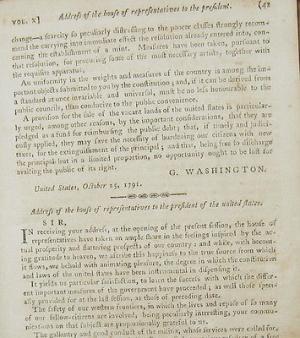 VOL. X] Address of the house of representatives to the president. (42
change—a scarcity so peculiarly distressing to the poorer classes strongly recom-
mend the carrying into immediate effect the resolution already entered into, con-
cerning the establishment of a mint. Measures have been taken, pursuant to
that resolution, for procuring some of the most necessary artists, together with
the requisite apparatus.
An uniformity in the weights and measures of the country is among the im-
portant objects submitted to you by the constitution; and, if it can be derived from
a standard at once invariable and universal, must be no less honourable to the
public councils, than conducive to the public convenience.
A provision for the sale of the vacant lands of the united states is particular-
ly urged, among other reasons, by the important considerations, that they are
pledged as a fund for reimbursing the public debt; that, if timely and judici-
ously applied, they may save the necessity of burdening our citizens with new
taxes, for the extinguishment of the principal; and that, being free to discharge
the principal but in a limited proportion, no opportunity ought to be lost for
availing the public of its right.
G. WASHINGTON.
United States, October 25, 1791.
Address of the house of representatives to the president of the united states.
SIR,
In receiving your address, at the opening of the present session, the house of
representatives have taken an ample share in the feelings inspired by the ac-
tual prosperity and flattering prospects of our country: and while, with becom-
ing gratitude to heaven, we ascribe this happiness to the true source from which
it flows, we behold with animating pleasure, the degree in which the constitution
and laws of the united states have been instrumental in dispensing it.
It yields us particular satisfaction, to learn the success with which the differ-
ent important measures of the government have proceeded; as well those spe-
cially provided for at the last session, as those of preceding date.
The safety of our western frontier, in which the lives and repose of so many
of our fellow-citizens are involved, being peculiarly interesting, your commu-
nications on that subject are proportionally grateful to us.
The gallantry and good conduct of the militia, whose services were called for,